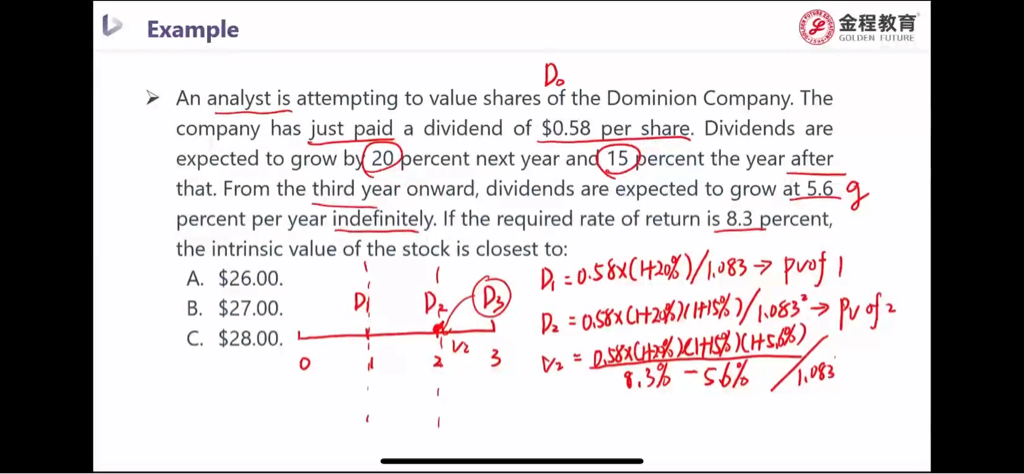 Example
金程教育
GOLDEN FUTURE
D₀
➤ An analyst is attempting to value shares of the Dominion Company. The
company has just paid a dividend of $0.58 per share. Dividends are
expected to grow by 20 percent next year and 15 percent the year after
that. From the third year onward, dividends are expected to grow at 5.6 g
percent per year indefinitely. If the required rate of return is 8.3 percent,
the intrinsic value of the stock is closest to:
A. $26.00.
B. $27.00.
C. $28.00.
D₁ D₂ D₃
V₂
0 1 2 3
D₁ = 0.58×(1+20%)/1.083 → PV of 1
D₂ = 0.58×(1+20%)(1+15%)/1.083² → PV of 2
V₂ = 0.58×(1+20%)(1+15%)(1+5.6%)
8.3% - 5.6% / 1.083